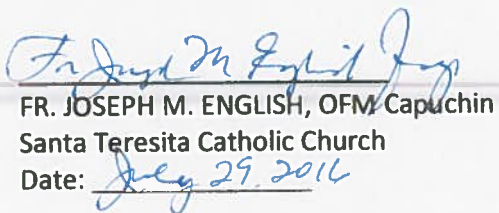 Fr Joseph M English
FR. JOSEPH M. ENGLISH, OFM Capuchin
Santa Teresita Catholic Church
Date: July 29, 2016